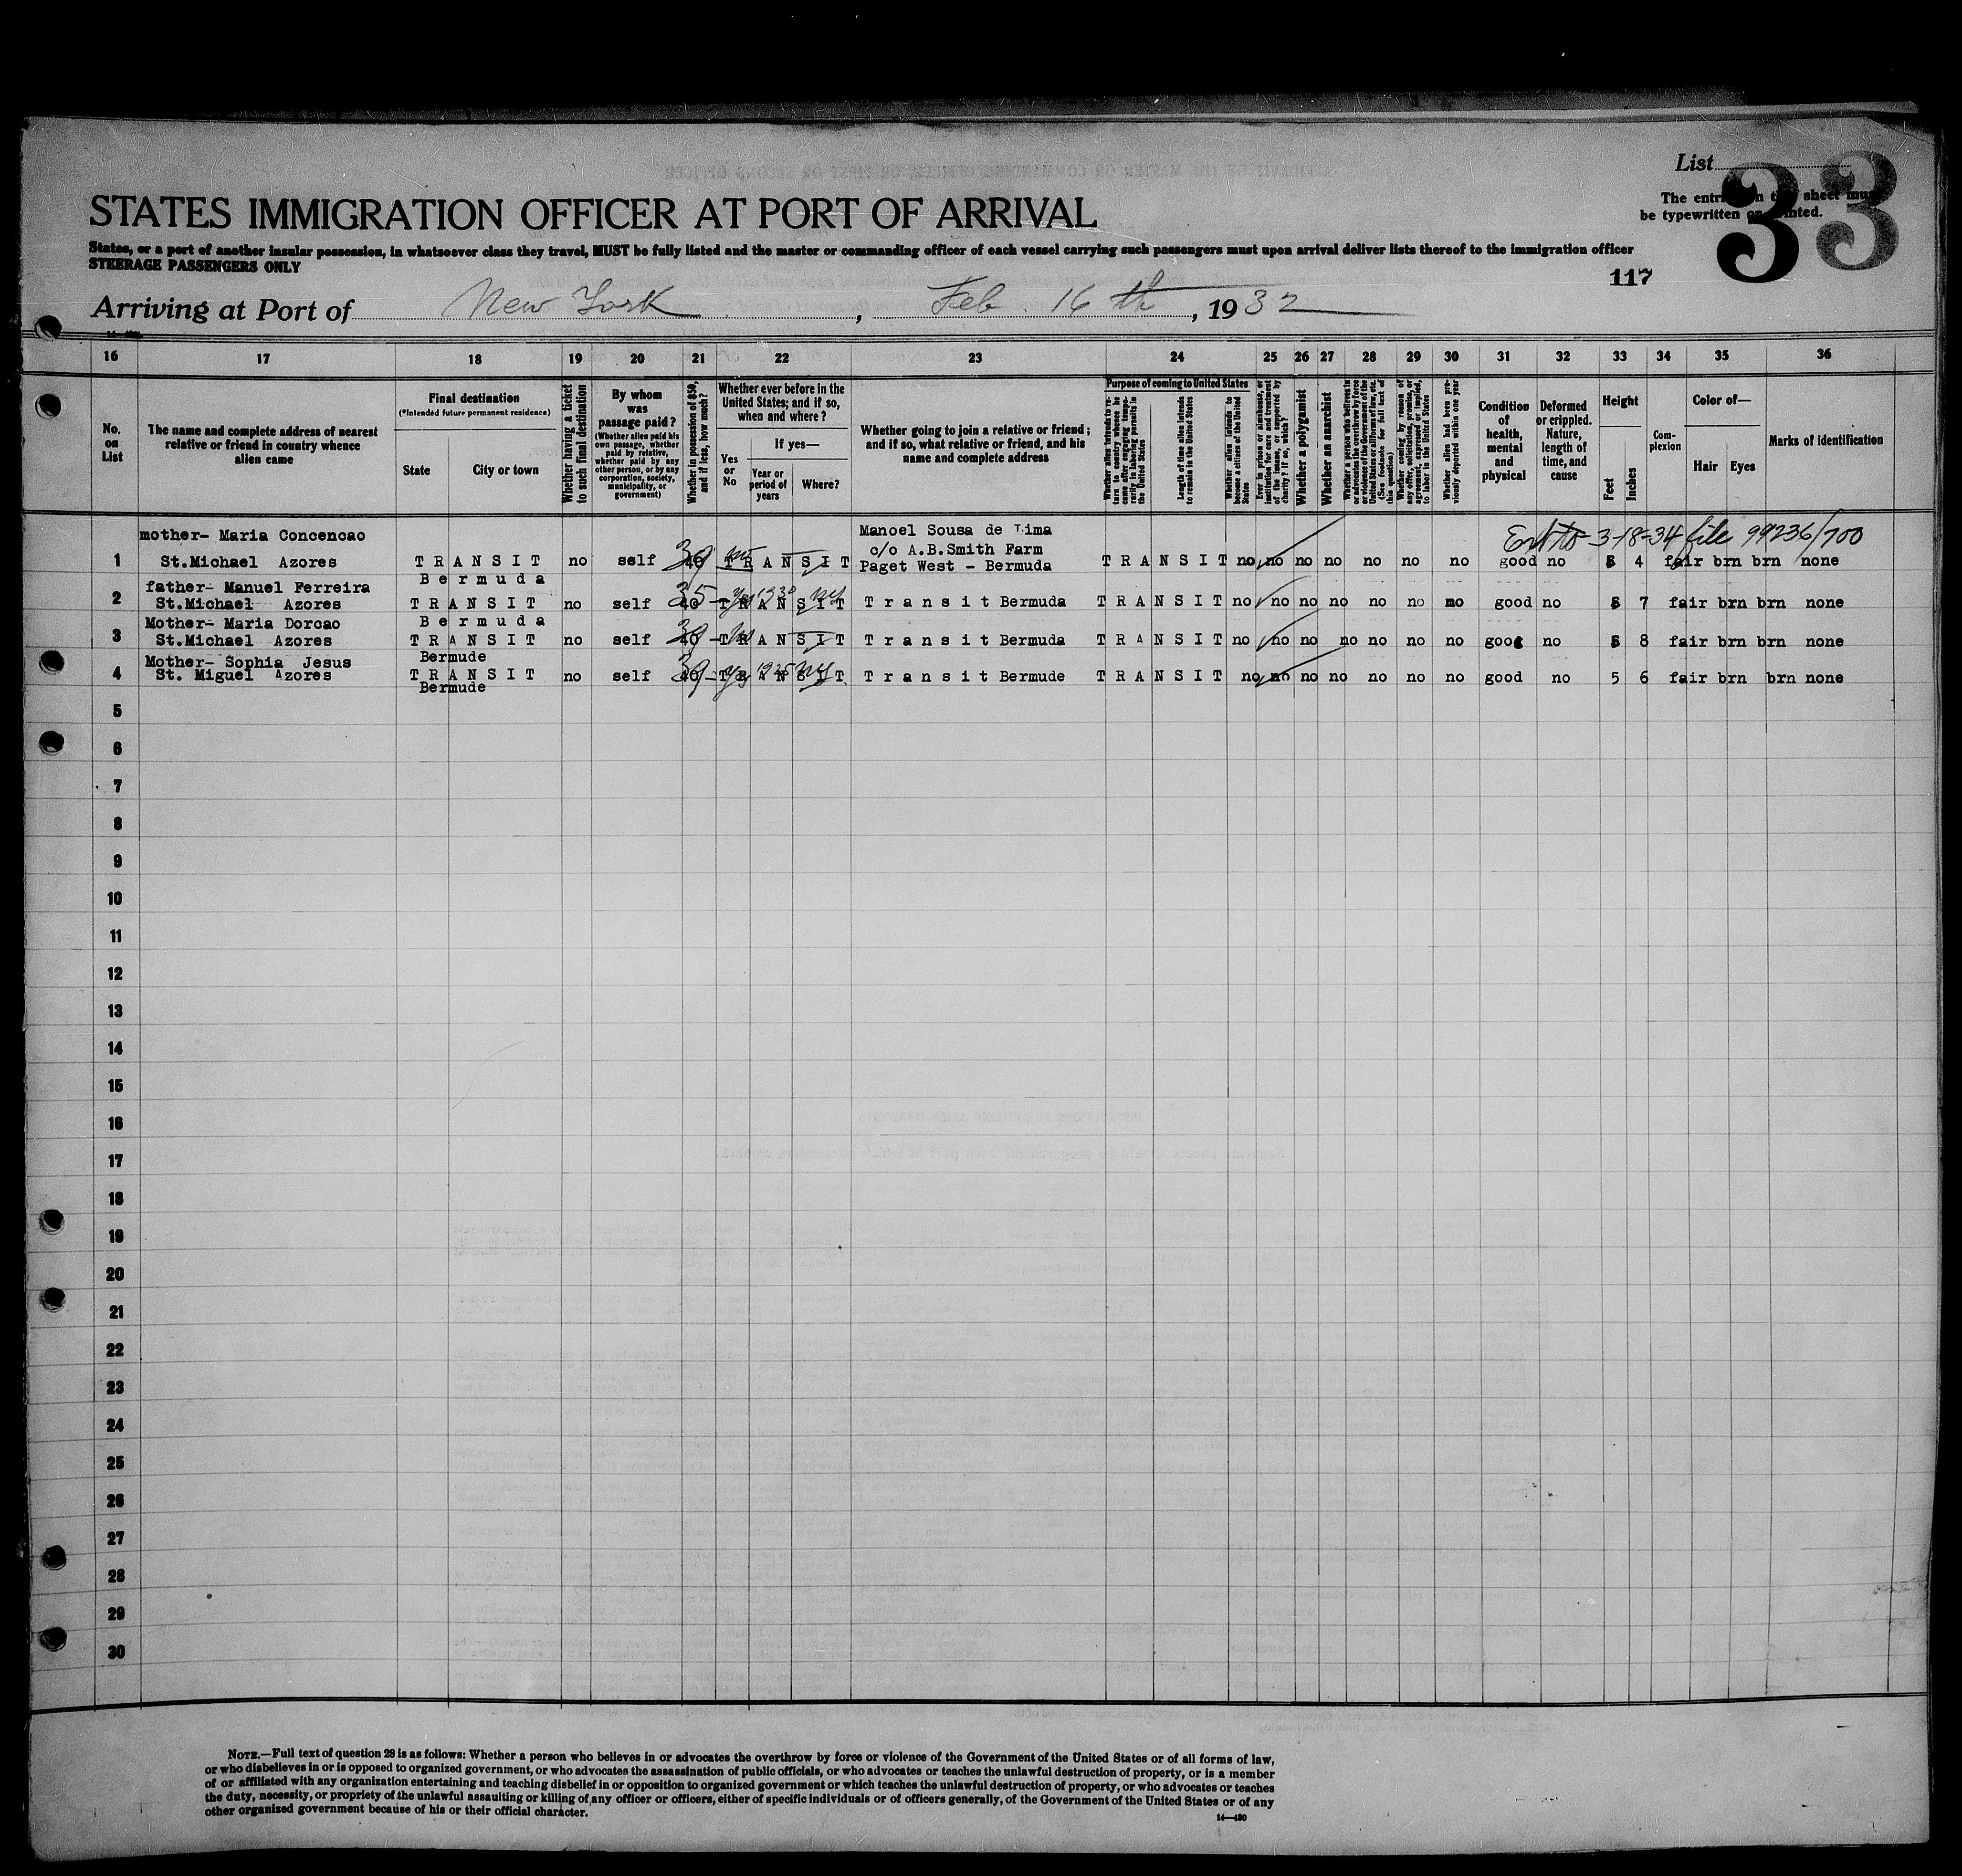 List
33
The entries on this sheet must
be typewritten or printed.
STATES IMMIGRATION OFFICER AT PORT OF ARRIVAL
States, or a port of another insular possession, in whatsoever class they travel, MUST be fully listed and the master or commanding officer of each vessel carrying such passengers must upon arrival deliver lists thereof to the immigration officer
STEERAGE PASSENGERS ONLY
117
Arriving at Port of New York, Feb 16 th, 1932
16 17 18 19 20 21 22 23 24 25 26 27 28 29 30 31 32 33 34 35 36
No. on List
The name and complete address of nearest relative or friend in country whence alien came
Final destination
(*Intended future permanent residence)
State
City or town
Whether having a ticket to such final destination
By whom was passage paid?
(Whether alien paid his own passage, whether paid by relative, whether paid by any other person, or by any corporation, society, municipality, or government)
Whether in possession of $50, and if less, how much?
Whether ever before in the United States; and if so, when and where?
If yes—
Yes or No
Year or period of years
Where?
Whether going to join a relative or friend; and if so, what relative or friend, and his name and complete address
Purpose of coming to United States
Whether alien intends to return to country whence he came after engaging temporarily in laboring pursuits in the United States
Length of time alien intends to remain in the United States
Whether alien intends to become a citizen of the United States
Ever in prison or almshouse, or institution for care and treatment of the insane, or supported by charity? If so, which?
Whether a polygamist
Whether an anarchist
Whether a person who believes in or advocates the overthrow by force or violence of the Government of the United States or all forms of law, etc. (See footnote for full text of this question)
Whether coming by reason of any offer, solicitation, promise, or agreement, expressed or implied, to labor in the United States
Whether alien had been previously deported within one year
Condition of health, mental and physical
Deformed or crippled. Nature, length of time, and cause
Height
Feet
Inches
Complexion
Color of—
Hair
Eyes
Marks of identification
mother- Maria Concencao Manoel Sousa de Lima 3-18-34 file 99236/700
c/o A.B.Smith Farm
1 St.Michael Azores TRANSIT no self 39 40 no TRANSIT Paget West - Bermuda TRANSIT no no no no no no no good no 5 4 fair brn brn none
Bermuda
father- Manuel Ferreira
2 St.Michael Azores TRANSIT no self 35 40 yes 1930 NY TRANSIT Transit Bermuda TRANSIT no no no no no no no good no 5 7 fair brn brn none
Bermuda
Mother- Maria Dorcao
3 St.Michael Azores TRANSIT no self 39 40 no TRANSIT Transit Bermuda TRANSIT no no no no no no no good no 5 8 fair brn brn none
Bermude
Mother- Sophia Jesus
4 St. Miguel Azores TRANSIT no self 39 40 yes 1925 NY TRANSIT Transit Bermude TRANSIT no no no no no no no good no 5 6 fair brn brn none
Bermude
5
6
7
8
9
10
11
12
13
14
15
16
17
18
19
20
21
22
23
24
25
26
27
28
29
30
NOTE.—Full text of question 28 is as follows: Whether a person who believes in or advocates the overthrow by force or violence of the Government of the United States or of all forms of law,
or who disbelieves in or is opposed to organized government, or who advocates the assassination of public officials, or who advocates or teaches the unlawful destruction of property, or is a member
of or affiliated with any organization entertaining and teaching disbelief in or opposition to organized government or which teaches the unlawful destruction of property, or who advocates or teaches
the duty, necessity, or propriety of the unlawful assaulting or killing of any officer or officers, either of specific individuals or of officers generally, of the Government of the United States or of any
other organized government because of his or their official character.
14—430